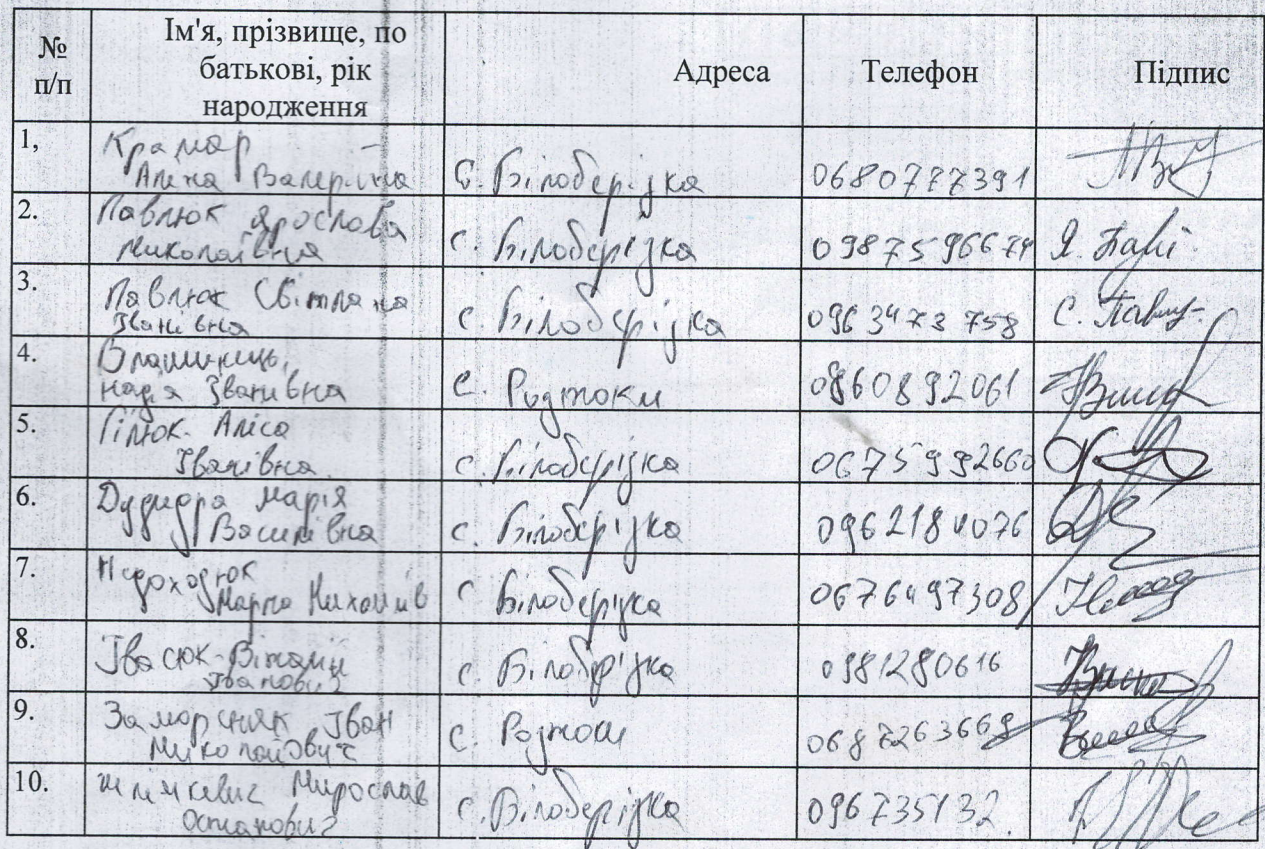 № п/п
Ім'я, прізвище, по
батькові, рік
народження
Адреса
Телефон
Підпис
1,
Крамар
Аліна Валеріївна
С. Білоберізка
0680777391
2.
Павлюк Ярослава
Миколаївна
с. Білоберізка
0987596679
Я. Павл
3.
Павлюк Світлана
Іванівна
с. Білоберізка
0963473758
С. Павлю
4.
Надія Іванівна
с. Розтоки
0960892061
5.
Гілюк Аліса
Іванівна
с. Білоберізка
0675992660
6.
Марія
Василівна
с. Білоберізка
7.
Марта Михайлів
с. Білоберізка
0676497308
8.
Івасюк Віталій
Іванович
с. Білоберізка
0981280616
9.
Заморсняк Іван
Миколайович
с. Розтоки
10.
Мирослав
Остапович
с. Білоберізка
096735132